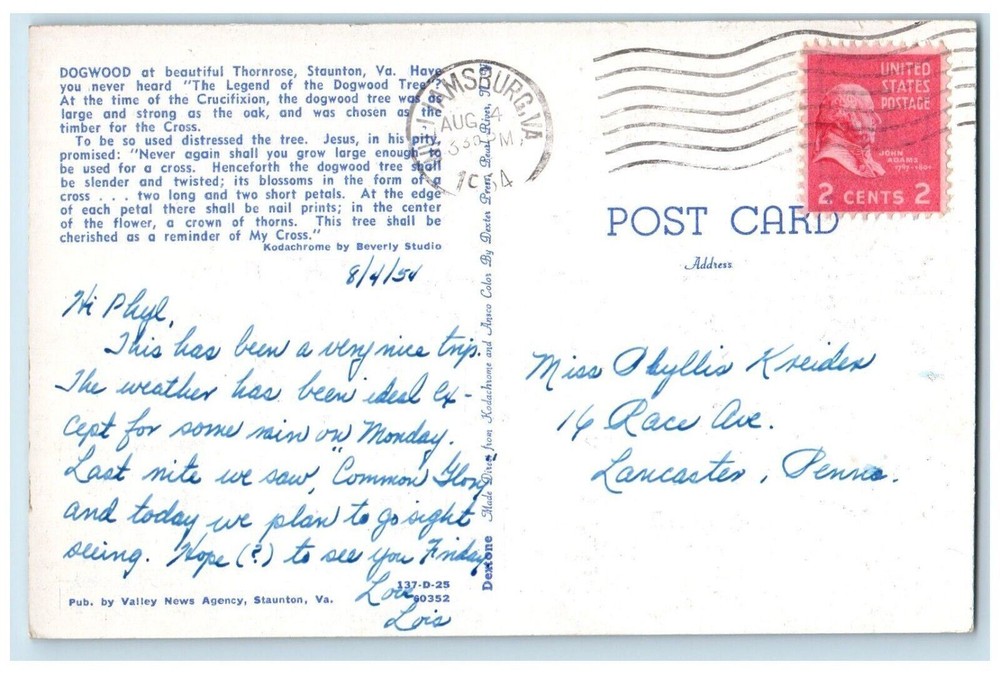 DOGWOOD at beautiful Thornrose, Staunton, Va. Have
you never heard "The Legend of the Dogwood Tree?"
At the time of the Crucifixion, the dogwood tree was
large and strong as the oak, and was chosen as the
timber for the Cross.
To be so used distressed the tree. Jesus, in his pity
promised: "Never again shall you grow large enough to
be used for a cross. Henceforth the dogwood tree shall
be slender and twisted; its blossoms in the form of a
cross . . . two long and two short petals. At the edge
of each petal there shall be nail prints; in the center
of the flower, a crown of thorns. This tree shall be
cherished as a reminder of My Cross."
Kodachrome by Beverly Studio
8/4/54
Hi Phyl,
This has been a very nice trip.
The weather has been ideal ex-
cept for some rain on Monday.
Last nite we saw, "Common Glory
and today we plan to go sight
seeing. Hope (?) to see you Friday
Love
Lois
137-D-25
60352
Pub. by Valley News Agency, Staunton, Va.
Dextone Made Direct from Kodachrome and Ansco Color By Dexter Press, Pearl River, N.Y.
WILLIAMSBURG, VA.
AUG 4
3 30 PM
1954
UNITED
STATES
POSTAGE
JOHN
ADAMS
1797-1801
2 CENTS 2
POST CARD
Address
Miss Phyllis Kreider
16 Race Ave.
Lancaster, Penna.